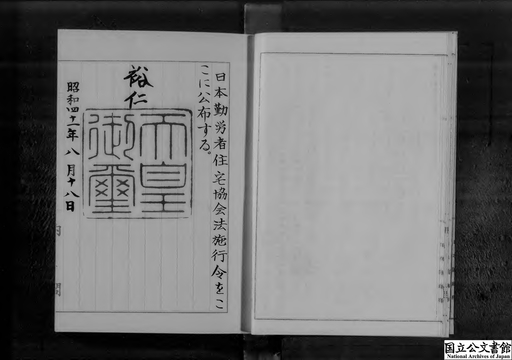 日本勤労者住宅協会法施行令をこ
こに公布する。
裕仁
天皇
御璽
昭和四十一年八月十八日
国立公文書館
National Archives of Japan